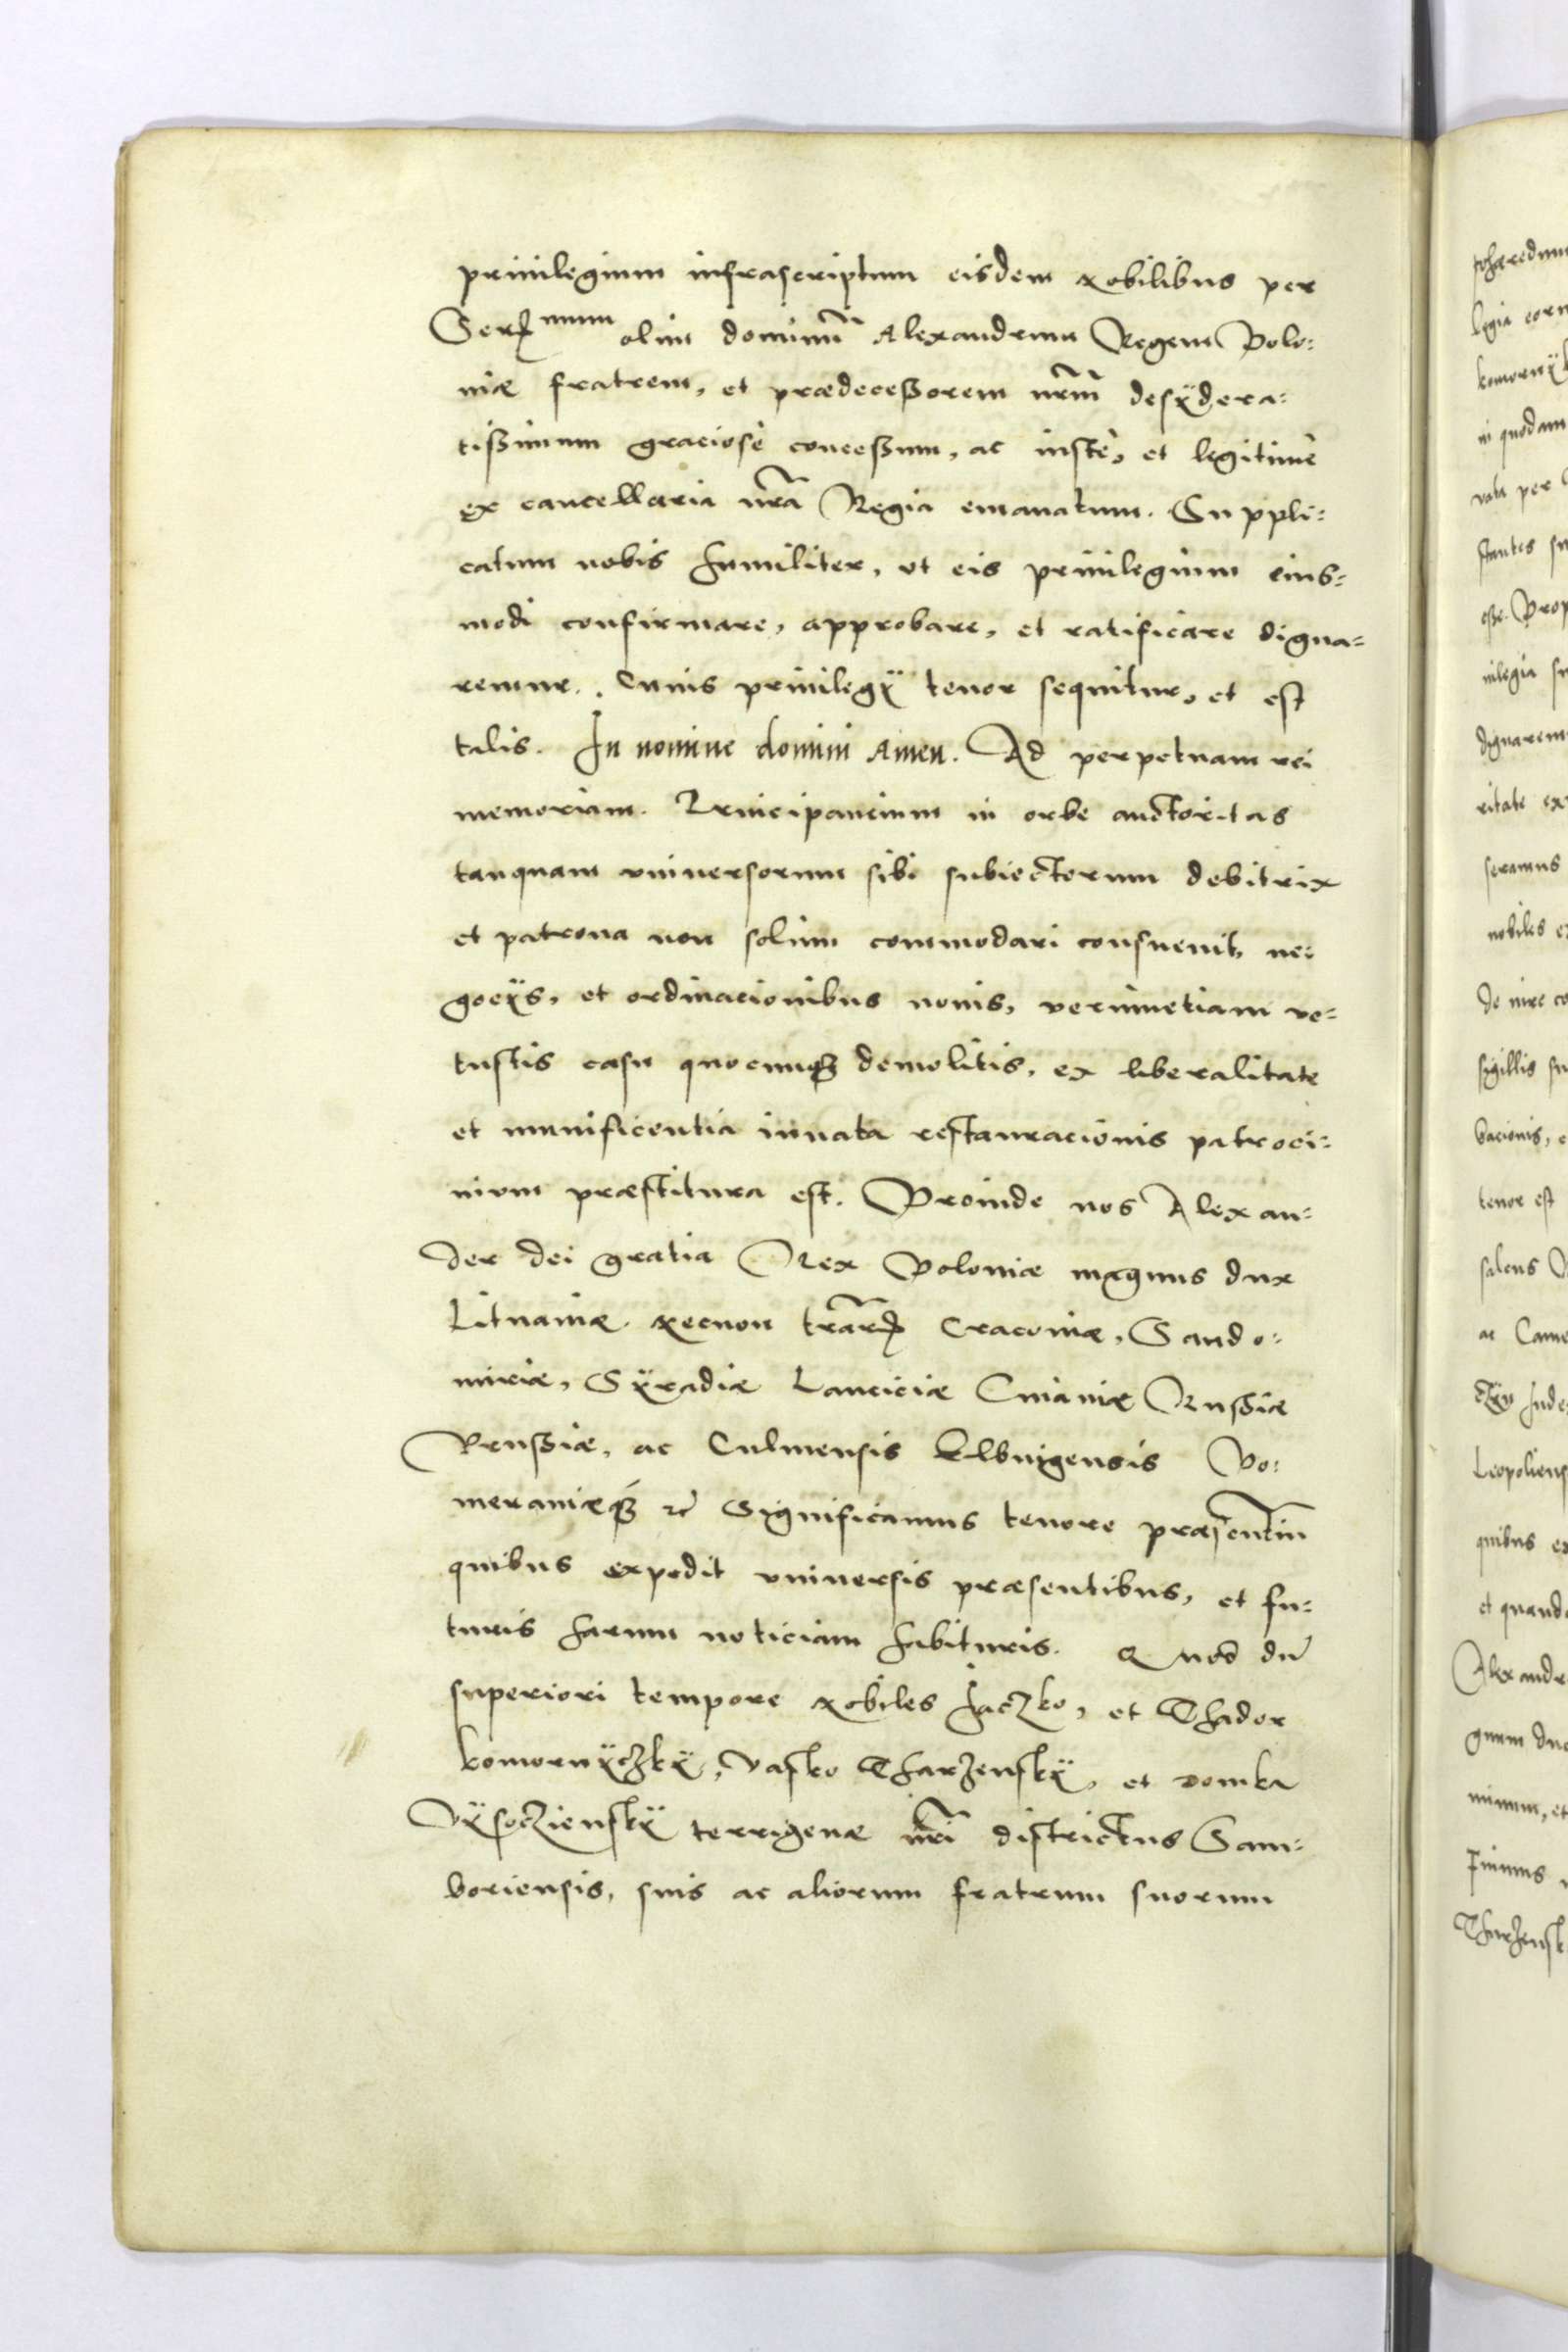 priuilegium infrascriptum eisdem Nobilibus per
Sermum olim dominū Alexandrum Regem Polo:
niæ fratrem, et prædecessorem nrm̄ desÿdera:
tissimum graciosè concessum, ac iustè, et legitimè
ex cancellaria nr̄a Regia emanatum. Suppli:
catum nobis humiliter, ut eis priuilegium eius:
modi confirmare, approbare, et ratificare digna:
remur. Cuius priuilegÿ tenor sequitur, et est
talis. In nomine domini Amen. Ad perpetuam rei
memoriam. Principancium in orbe auctoritas
tanquam vniuersorum sibi subiectorum debitrix
et patrona non solùm commodari consueuit, ne:
gocÿs, et ordinacionibus nouis, verùmetiam ve:
tustis casu quocunq̨ demolitis, ex liberalitate
et munificentia innata restauracionis patroci:
nium præstitura est. Proinde nos Alexan:
der dei gratia Rex Poloniæ magnus dux
Lituaniæ. Necnon trār Cracouiæ, Sando:
miriæ, Sÿradiæ Lanciciæ Cuiauiæ Russiæ
Prussiæ, ac Culmensis Elbingensis Po:
meraniæq̨ꝫ etc̄ Significamus tenore præsentiū
quibus expedit vniuersis præsentibus, et fu:
turis harum noticiam habituris. Quod dū
superiori tempore Nobiles Jaczko, et Thador
komornÿczkÿ, Vasko Tharzenskÿ, et Romka
Vÿsoczienskÿ terrigenæ nr̄i districtus Sam:
boriensis, suis ac aliorum fratrum suorum